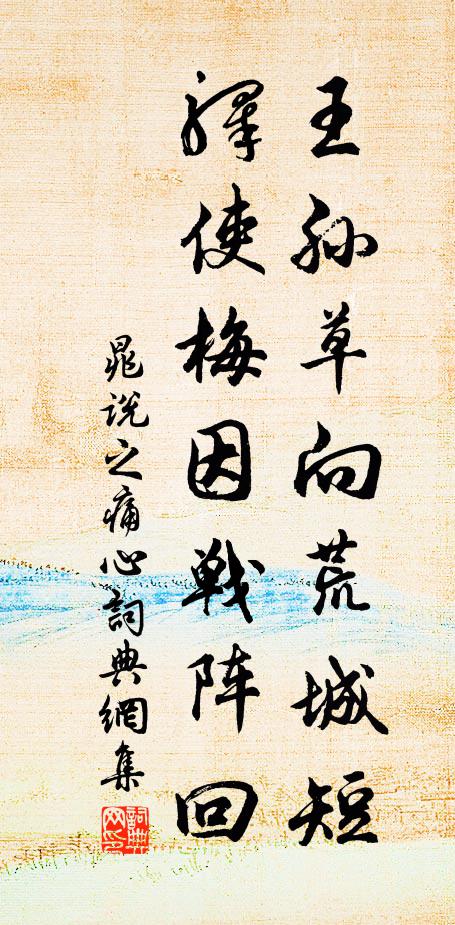 王孙草向荒城短
驛使梅因戦阵回
晁说之痛心詞典網集
詞典网印